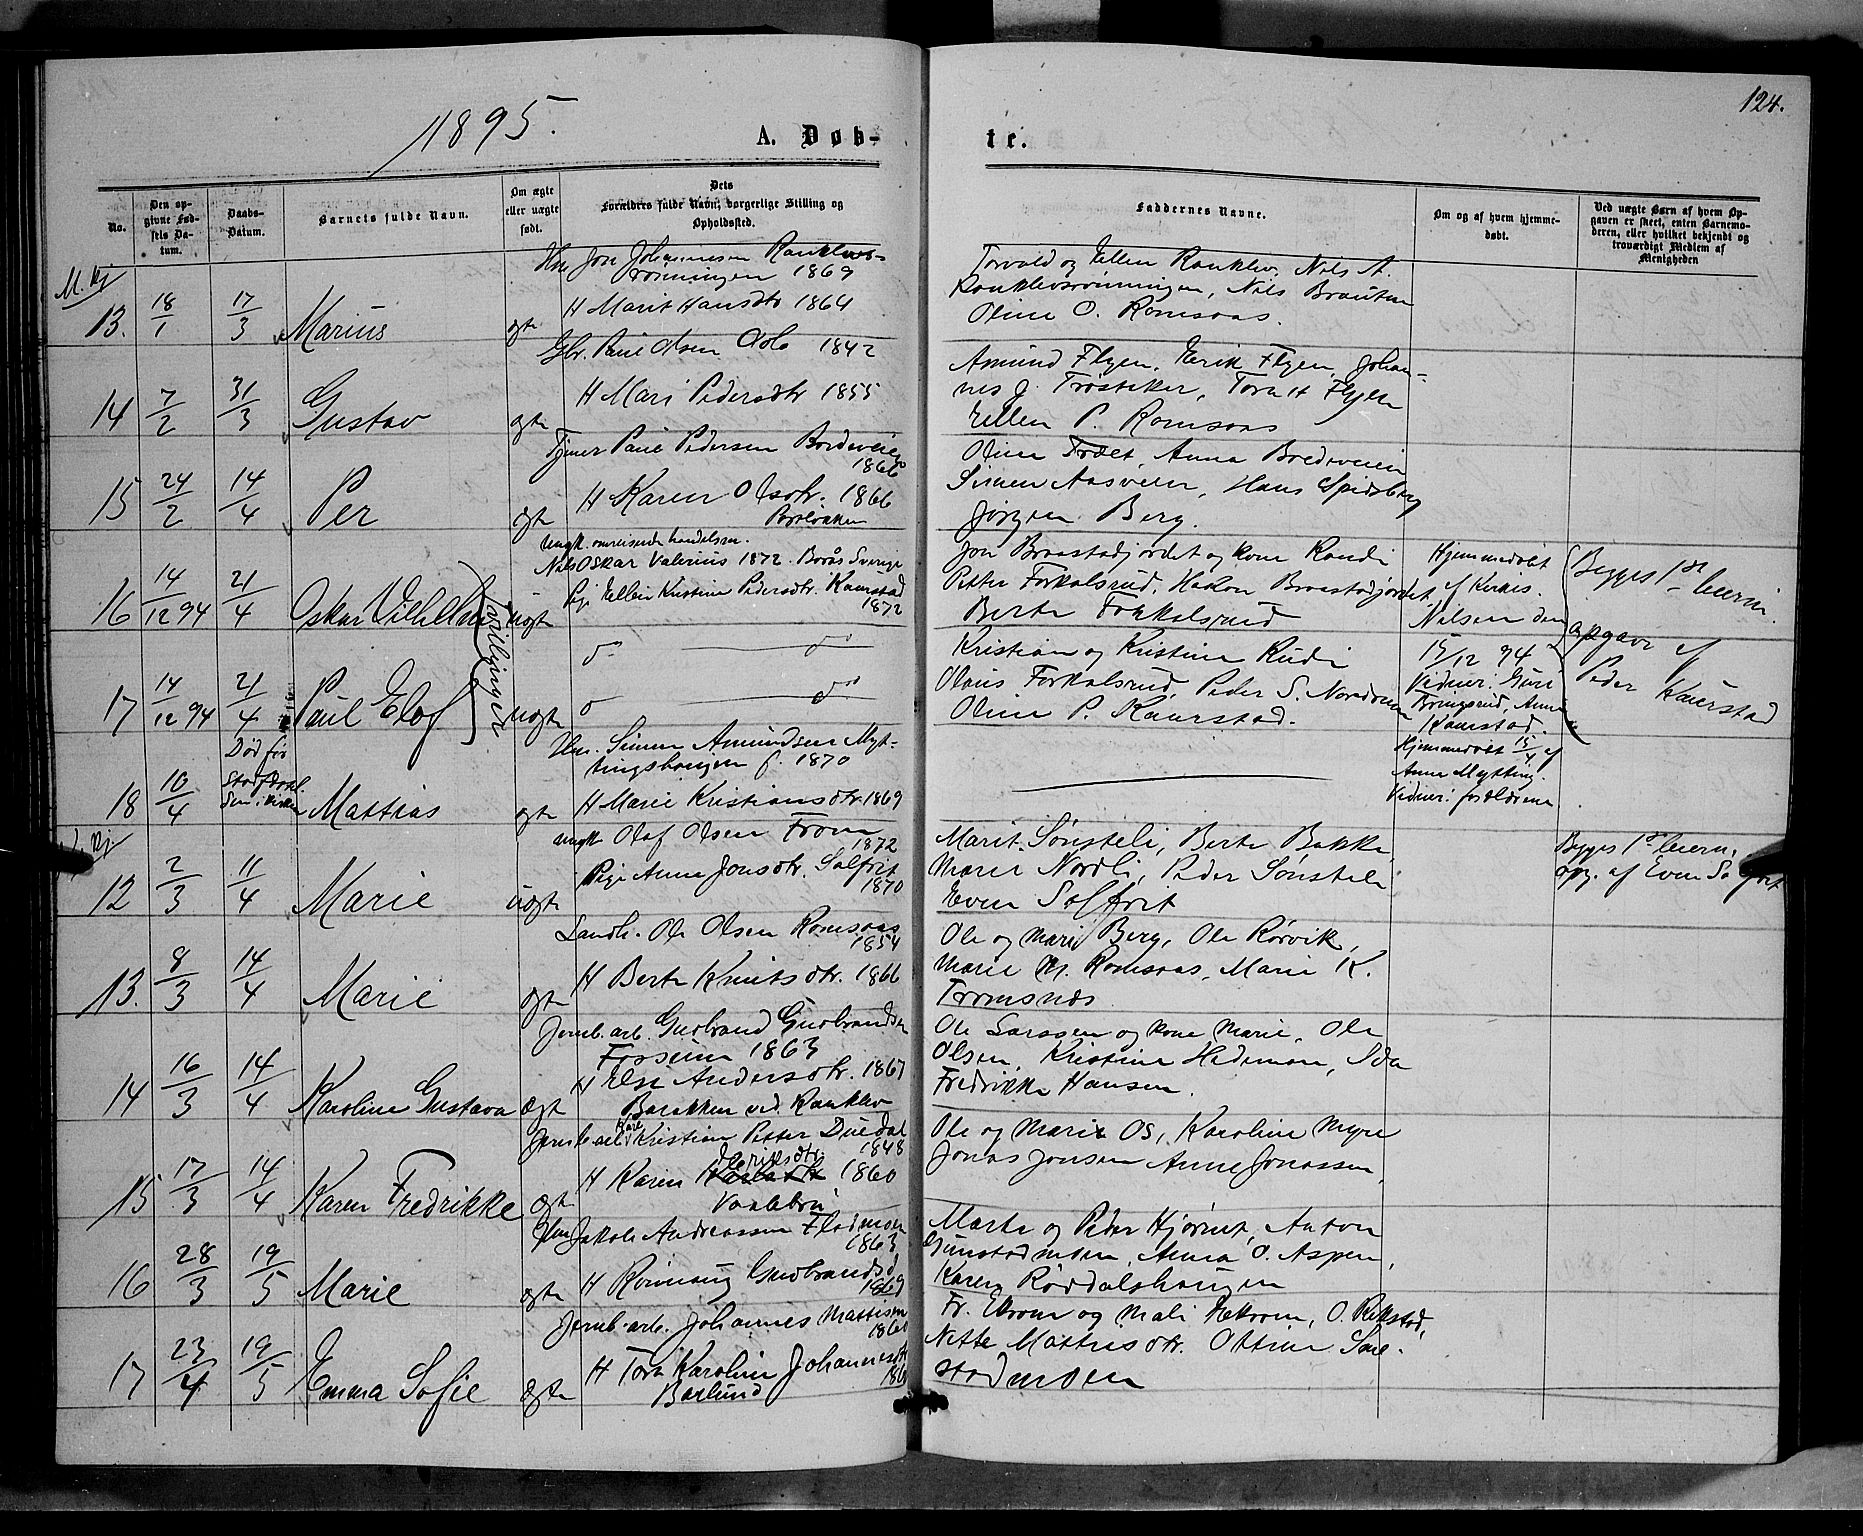 124.
1895.
A. Døb-
te.
No.
Den op-
givne Fød-
sels Da-
tum.
Daabs-
Datum.
Barnets fulde Navn.
Om ægte
eller uægte
født.
Dets
Forældres fulde Navn, borgerlige Stilling og
Opholdssted.
Faddernes Navne.
Om og af hvem hjemme-
døbt.
Ved uægte Børn af hvem Op-
gaven er skeet, enten Barnemo-
deren, eller hvilket bekjendt og
troværdigt Medlem af
Menigheden
M. Kj
13. 18/1 17/3 Marius ægte
Jon Johannesen Ranklevs-
rønningen 1869
H Marit Hansdtr 1864
Torvald og Ellen Ranklev, Nils A.
Ranklevsrønningen, Nils Brauten
Oline O. Romsaas.
14 7/2 31/3 Gustav ægte
Gbr. Paul Olsen 1842
H Mari Pedersdtr 1855
Amund Flyen, Erik Flyen, Johan-
nes J. Trøstaker, Tora H Flyen
Ellen P. Romsaas
15 24/2 14/4 Per ægte
Tjener Paul Pedersen Bredeveien
1866
H Karen Olsdtr. 1866
Oline Træet, Anna Bredeveien
Simen Aasveen, Hans Spidsberg
Jørgen Berg.
16 14/12 94 21/4 Oskar Vilhelm uægte
Ungk. omreisende handelsm.
Nils Oskar Valerius 1872. Borås Sverige
Pige Ellen Kristine Pedersdtr. Kaurstad
1872
Jon Braastadjordet og kone Randi
Petter Forkalsrud, Hakon Braastadjordet,
Berte Forkalsrud
Hjemmedøbt
af Kirkes.
Nilsen den
15/12 94
Vidner: Guri
Bringsrud, Anne
Kaurstad.
Begges 1ste leierm.
opgave af
Peder Kaurstad
tvillinger
17 14/12 94 21/4 Paul Elof uægte
do do
do do
Kristian og Kristine Rudi
Olaus Forkalsrud, Peder S. Nordrum
Oline P. Kaurstad.
18 10/4 Død før
Stadfæstel-
sen i Kirken Mattias ægte
Hm. Simen Amundsen Myt-
tingshaugen f. 1870
H Marie Kristiansdtr. 1869
Hjemmedøbt 15/4 af
Anne Mytting.
Vidner: forældrene
Kj.
12 2/3 11/4 Marie uægte
Ungk Olaf Olsen From
1872
Pige Anne Jonsdtr. Solfrit
1870
Marit Sønsteli, Berte Bakke,
Maren Nordli, Peder Sønsteli
Even Solfrit
Begges 1ste leierm.
opg. af Even Solfrit
13. 8/3 14/4 Marie ægte
Landh. Ole Olsen Romsaas
1854
H Berte Knutsdtr. 1866
Ole og Mari Berg, Ole Rørvik,
Marie M. Romsaas, Marie K.
Tromsnæs
14 16/3 14/4 Karoline Gustava ægte
Jernb. arb. Gudbrand Gudbrandsen
Fosseim 1863
H Else Andersdtr. 1867
Barakken ved Ranklev
Ole Larssen og kone Marie, Ole
Olsen, Kristine Hedemoen, Ida
Fredrikke Hansen.
15 17/3 14/4 Karen Fredrikke ægte
Jernb. arb. Kristian Petter Duedal
1848
H Karen Eriksdtr. 1860
Vaalebrú
Ole og Marie Os, Karoline Myre
Jonas Jonsen Anne Jonassen
16 28/3 19/5 Marie ægte
Hm Jakob Andreassen Flatmoen
1863
H Rønnaug Gudbrandsd
1869
Marte og Peder Hjørnet, Anton
Gunstadmoen, Anna O. Aspen,
Karen Røddalshaugen
17 23/4 19/5 Emma Sofie ægte
Jernb. arb. Johannes Mattisen
1860
H Tora Karoline Johannesdtr
Barlund
Fr. Ekrom og Mali Hekrom, O. Rikstad,
Nette Mattisdtr. Ottine Sme-
stadmoen